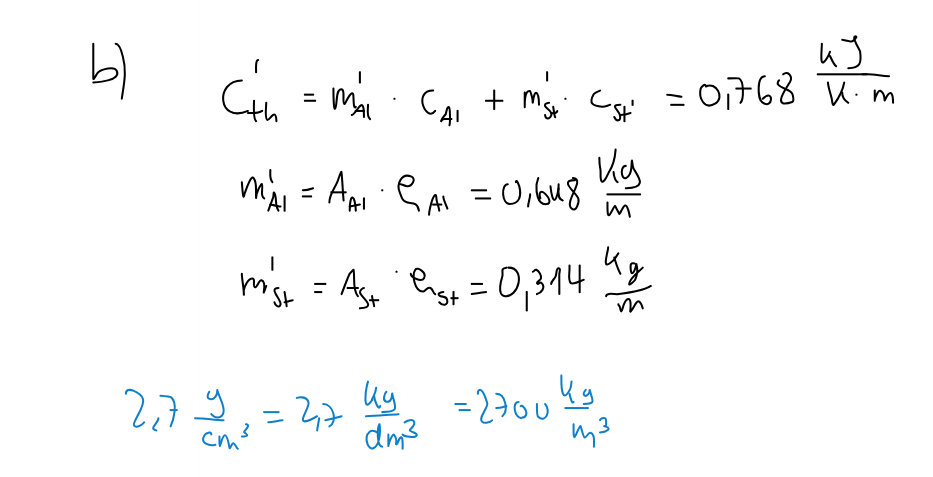 b) C'th = m'Al · cAl + m'St · cSt' = 0,768 kJ/K·m
m'Al = AAl · ϱAl = 0,648 kg/m
m'St = ASt · ϱSt = 0,314 kg/m
2,7 g/cm³ = 2,7 kg/dm³ = 2700 kg/m³